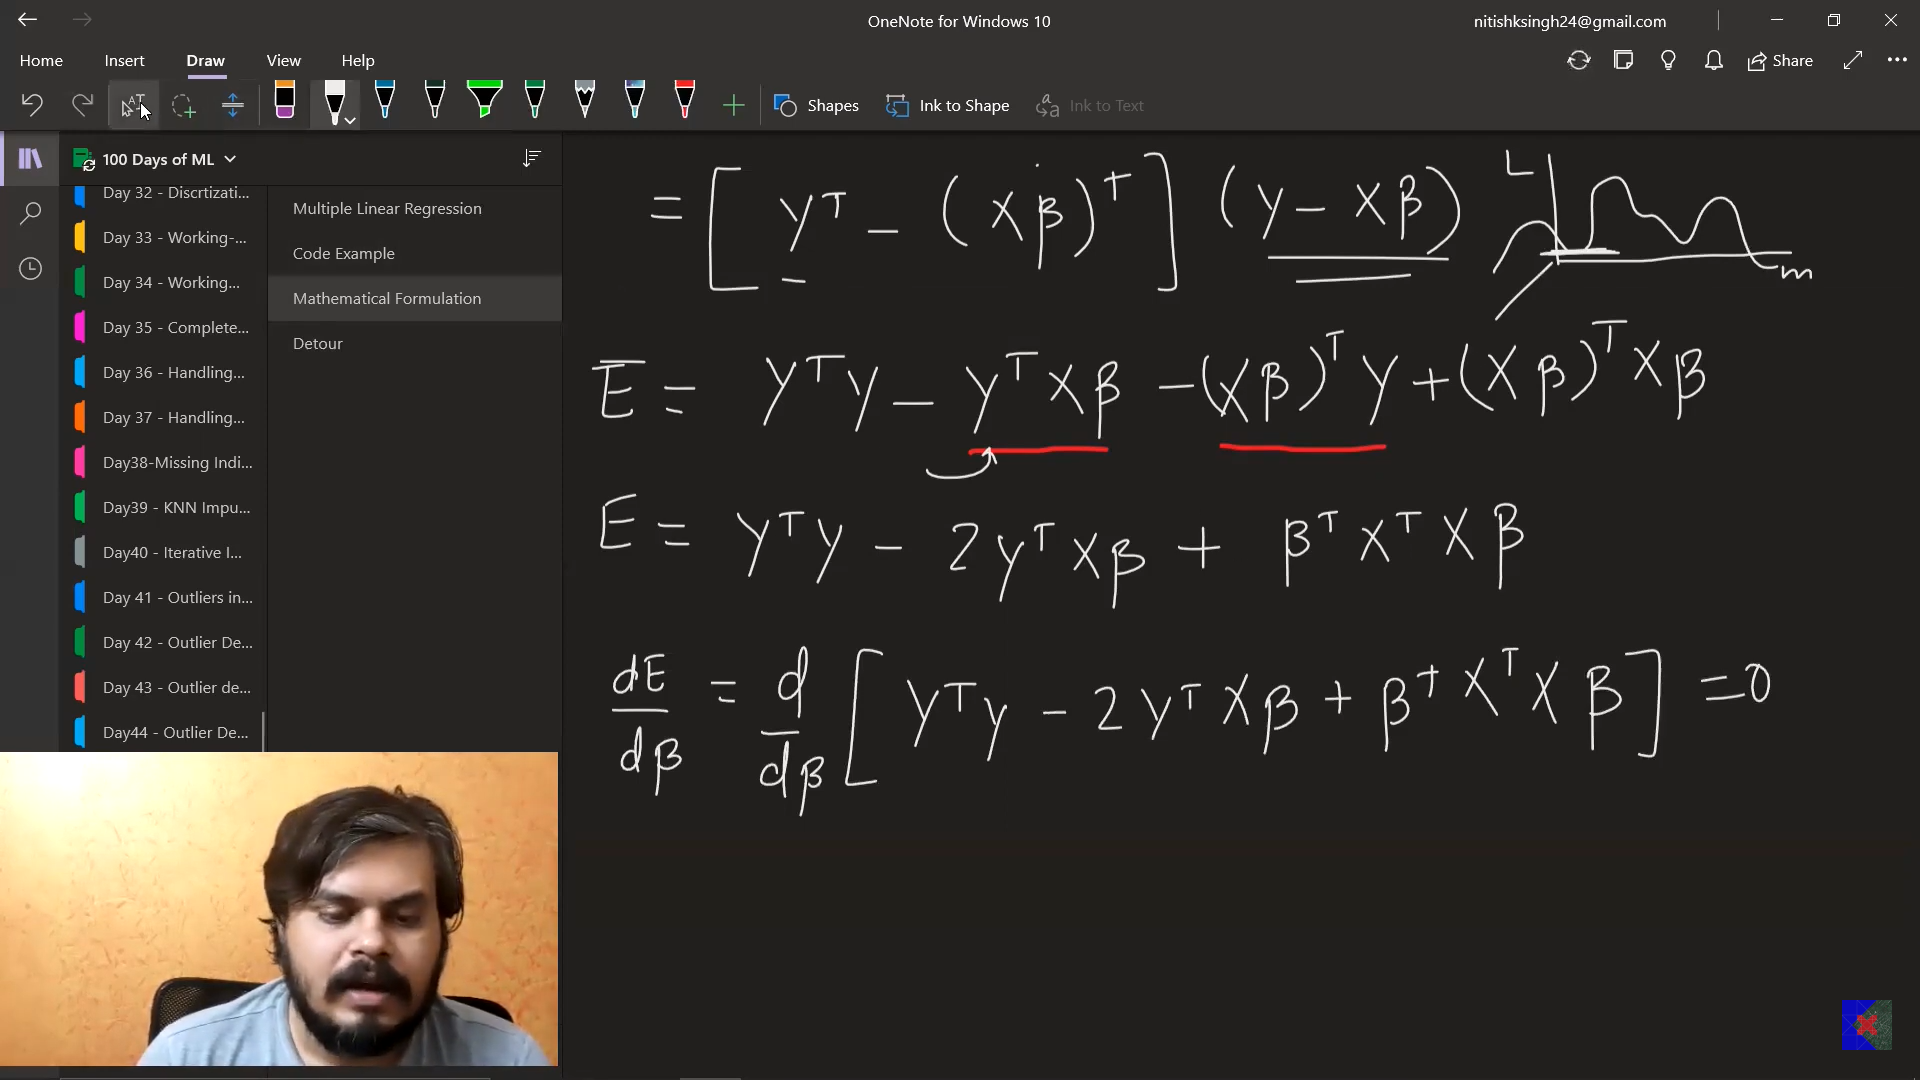 OneNote for Windows 10
nitishksingh24@gmail.com
Home Insert Draw View Help
Share
Shapes Ink to Shape Ink to Text
100 Days of ML
Day 32 - Discrtizati...
Day 33 - Working-...
Day 34 - Working...
Day 35 - Complete...
Day 36 - Handling...
Day 37 - Handling...
Day38-Missing Indi...
Day39 - KNN Impu...
Day40 - Iterative I...
Day 41 - Outliers in...
Day 42 - Outlier De...
Day 43 - Outlier de...
Day44 - Outlier De...
Multiple Linear Regression
Code Example
Mathematical Formulation
Detour
= [ yᵀ - (Xβ)ᵀ ] (y - Xβ)
L
m
E = yᵀy - yᵀXβ - (Xβ)ᵀy + (Xβ)ᵀXβ
E = yᵀy - 2yᵀXβ + βᵀXᵀXβ
dE/dβ = d/dβ [ yᵀy - 2yᵀXβ + βᵀXᵀXβ ] = 0